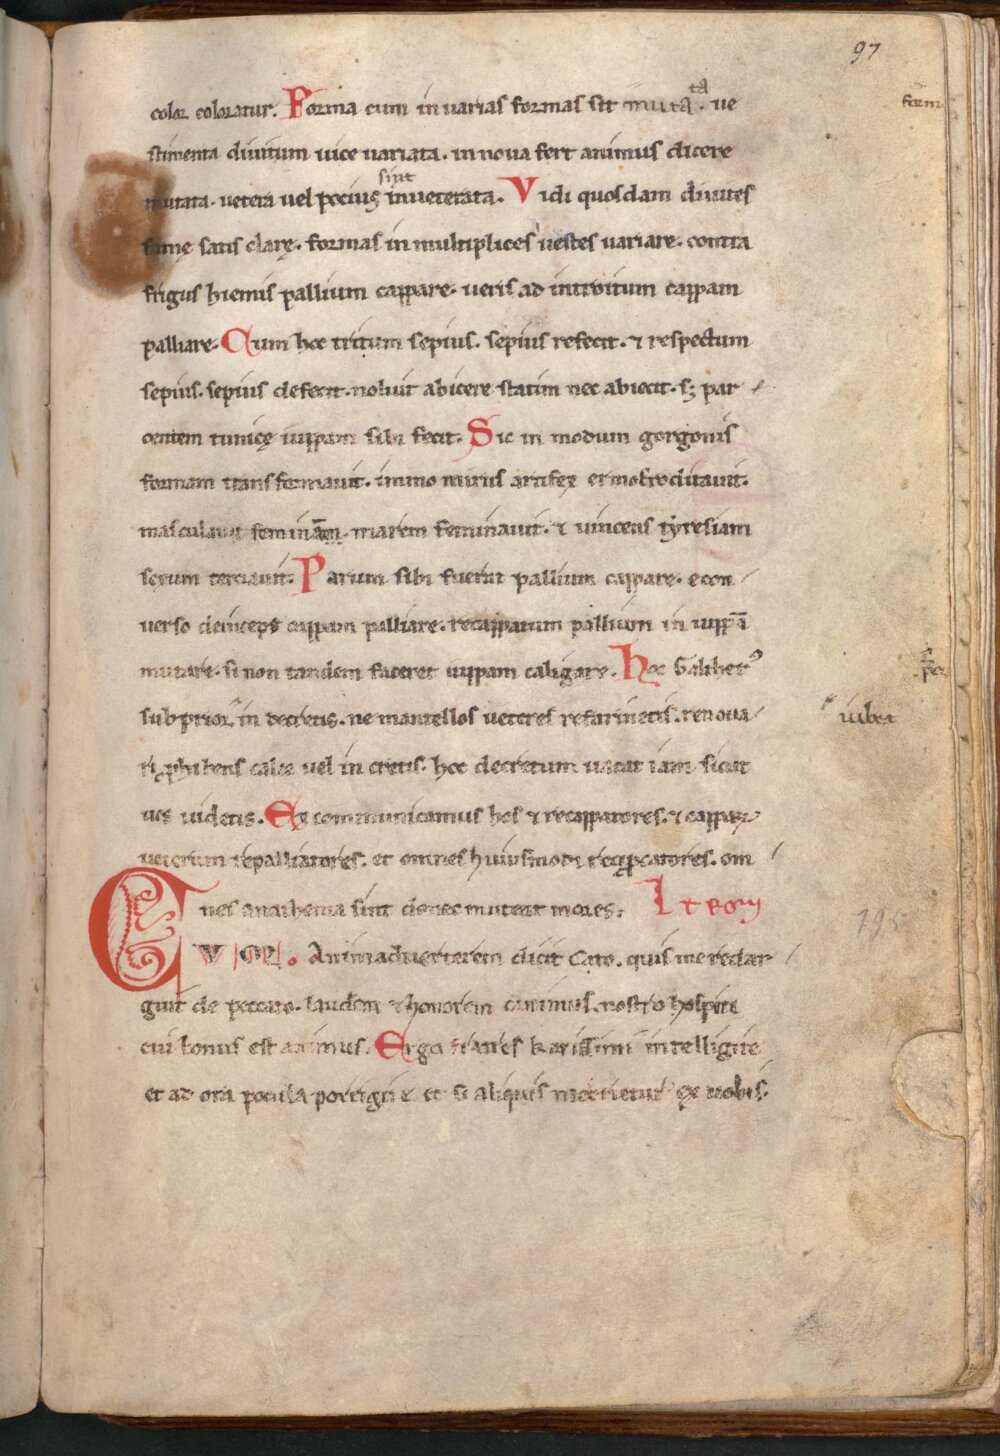 97
color coloratur. Forma cum in uarias formas sit mutata. ue
stimenta diuitum uice uariata. in noua fert animus dicere
mutata. uetera uel pocius sint inueterata. Vidi quosdam diuites
famę satis clarę. formas in multiplices uestes uariare. contra
frigus hiemis pallium cappare. ueris ad introitum cappam
palliare. Cum hoc tritum sepius. sepius refecit. ⁊ respectum
sepius. sepius defecit. noluit abicere statim nec abiecit. sꝫ par
centem tunicę iuppam sibi fecit. Sic in modum gorgonis
formam transformauit. immo mirus artifex
masculauit feminam. marem feminauit. ⁊ uincens tyresiam
sexum terciauit. Parum sibi fuerat pallium cappare. econ
uerso deinceps cappam palliare. recappatum pallium in iuppā
mutare. si non tandem faceret iuppam caligare. Hoc Galther᾽
subprior in decretis. ne mantellos ueteres refarinetis. renoua
ri ꝓhibens calce uel in cretis. hoc decretum uacat iam sicut
uos uidetis. Excommunicamus hos ⁊ recappatores. ⁊
ueterum repalliatores. et omnes huiusmodi om
nes anathema sint donec mutent mores. Item
CVM. Animaduerterem dicit Cato. quis me redar
guit de peccato. laudem ⁊ honorem canimus. nostro hospiti
cui bonus est animus. Ergo fratres karissimi intelligite
et ad ora pocula porrigite et si aliquis ex uobis.
form
iubet
195